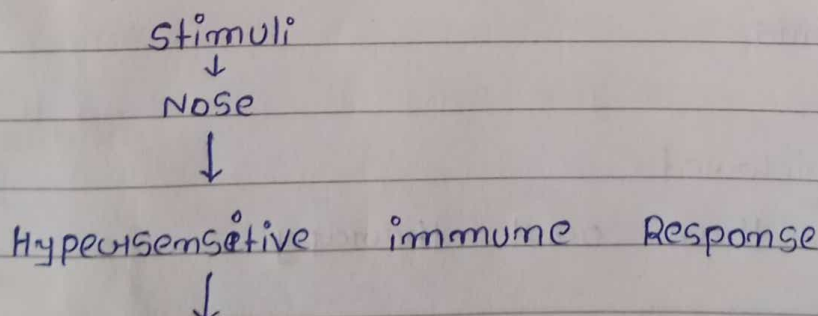 Stimuli
↓
Nose
↓
Hypersensitive immune Response
↓